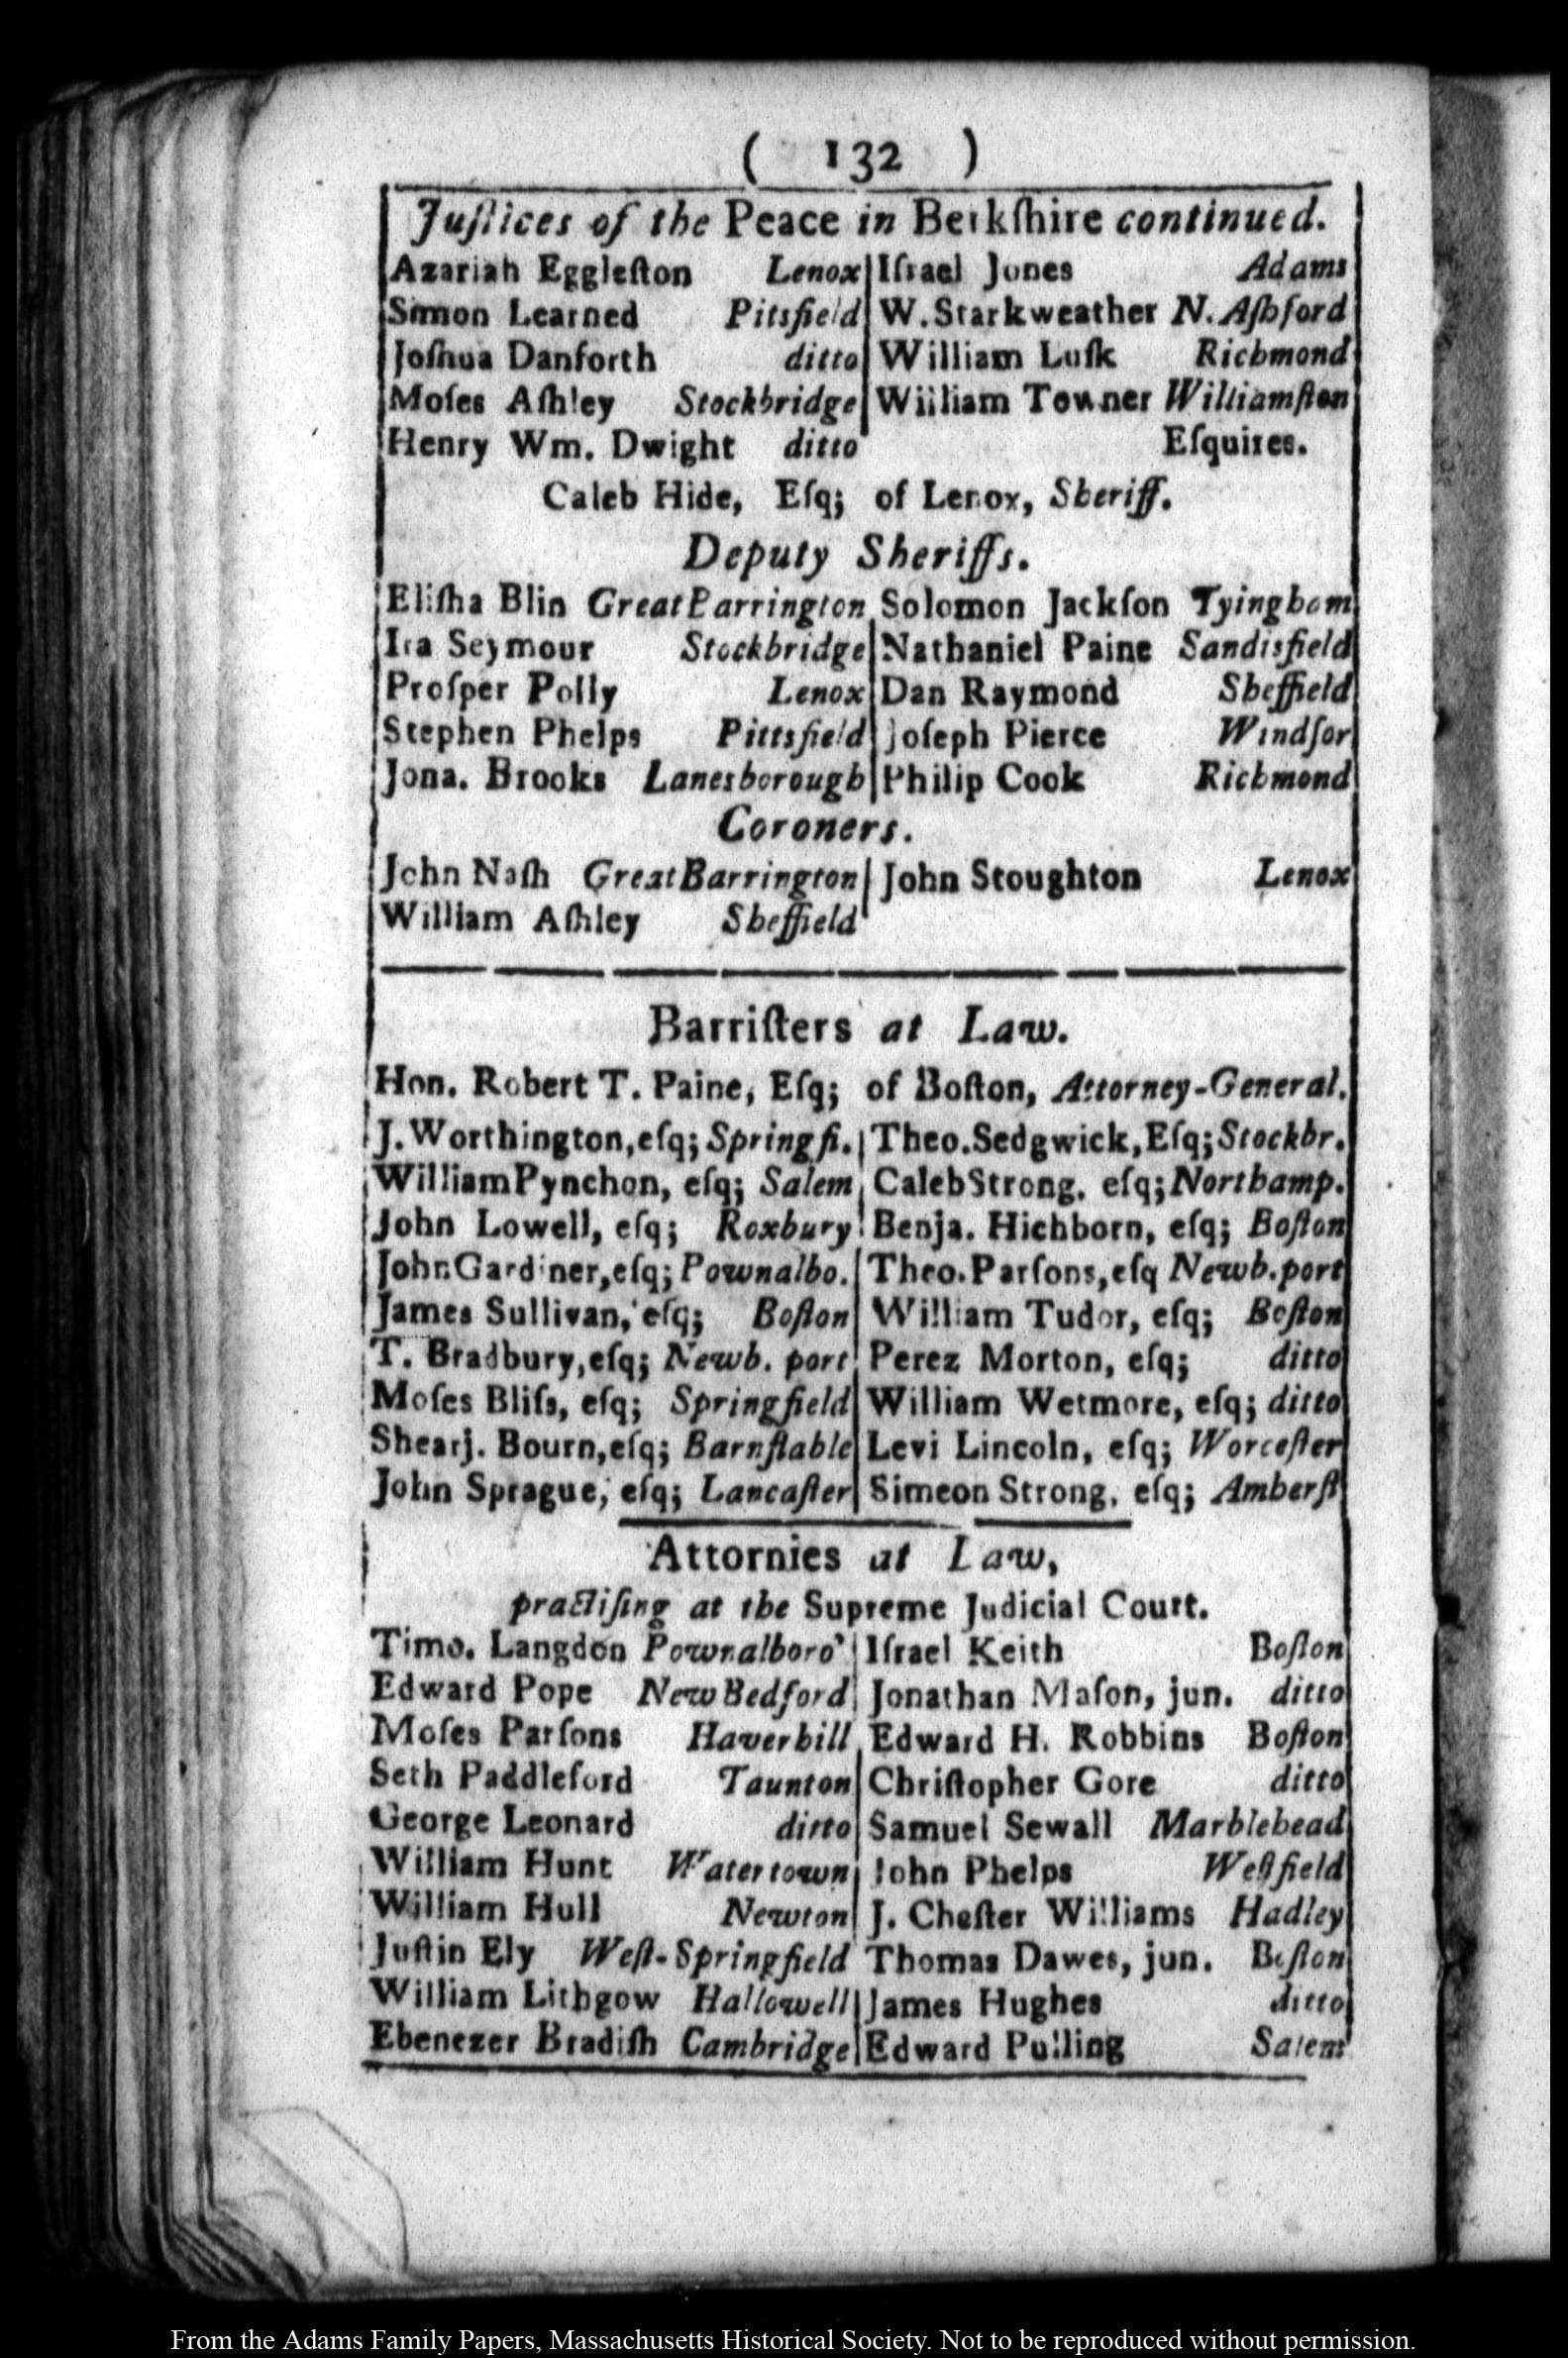 ( 132 )
Juſtices of the Peace in Berkſhire continued.
Azariah Eggleſton Lenox
Simon Learned Pitsfield
Joſhua Danforth ditto
Moſes Aſhley Stockbridge
Henry Wm. Dwight ditto
Iſrael Jones Adams
W. Starkweather N. Aſhford
William Luſk Richmond
William Towner Williamſton
Eſquires.
Caleb Hide, Eſq; of Lenox, Sheriff.
Deputy Sheriffs.
Eliſha Blin Great Barrington
Ira Seymour Stockbridge
Proſper Polly Lenox
Stephen Phelps Pittsfield
Jona. Brooks Lanesborough
Solomon Jackſon Tyingham
Nathaniel Paine Sandisfield
Dan Raymond Sheffield
Joſeph Pierce Windſor
Philip Cook Richmond
Coroners.
John Naſh Great Barrington
William Aſhley Sheffield
John Stoughton Lenox
Barriſters at Law.
Hon. Robert T. Paine, Eſq; of Boſton, Attorney-General.
J. Worthington, eſq; Springfi.
William Pynchon, eſq; Salem
John Lowell, eſq; Roxbury
John Gardiner, eſq; Pownalbo.
James Sullivan, eſq; Boſton
T. Bradbury, eſq; Newb. port
Moſes Bliſs, eſq; Springfield
Shearj. Bourn, eſq; Barnſtable
John Sprague, eſq; Lancaſter
Theo. Sedgwick, Eſq; Stockbr.
Caleb Strong, eſq; Northamp.
Benja. Hichborn, eſq; Boſton
Theo. Parſons, eſq Newb. port
William Tudor, eſq; Boſton
Perez Morton, eſq; ditto
William Wetmore, eſq; ditto
Levi Lincoln, eſq; Worceſter
Simeon Strong, eſq; Amherſt
Attornies at Law,
practiſing at the Supreme Judicial Court.
Timo. Langdon Pownalboro'
Edward Pope New Bedford
Moſes Parſons Haverhill
Seth Paddleford Taunton
George Leonard ditto
William Hunt Watertown
William Hull Newton
Juſtin Ely Weſt-Springfield
William Lithgow Hallowell
Ebenezer Bradiſh Cambridge
Iſrael Keith Boſton
Jonathan Maſon, jun. ditto
Edward H. Robbins Boſton
Chriſtopher Gore ditto
Samuel Sewall Marblehead
John Phelps Weſtfield
J. Cheſter Williams Hadley
Thomas Dawes, jun. Boſton
James Hughes ditto
Edward Pulling Salem
From the Adams Family Papers, Massachusetts Historical Society. Not to be reproduced without permission.